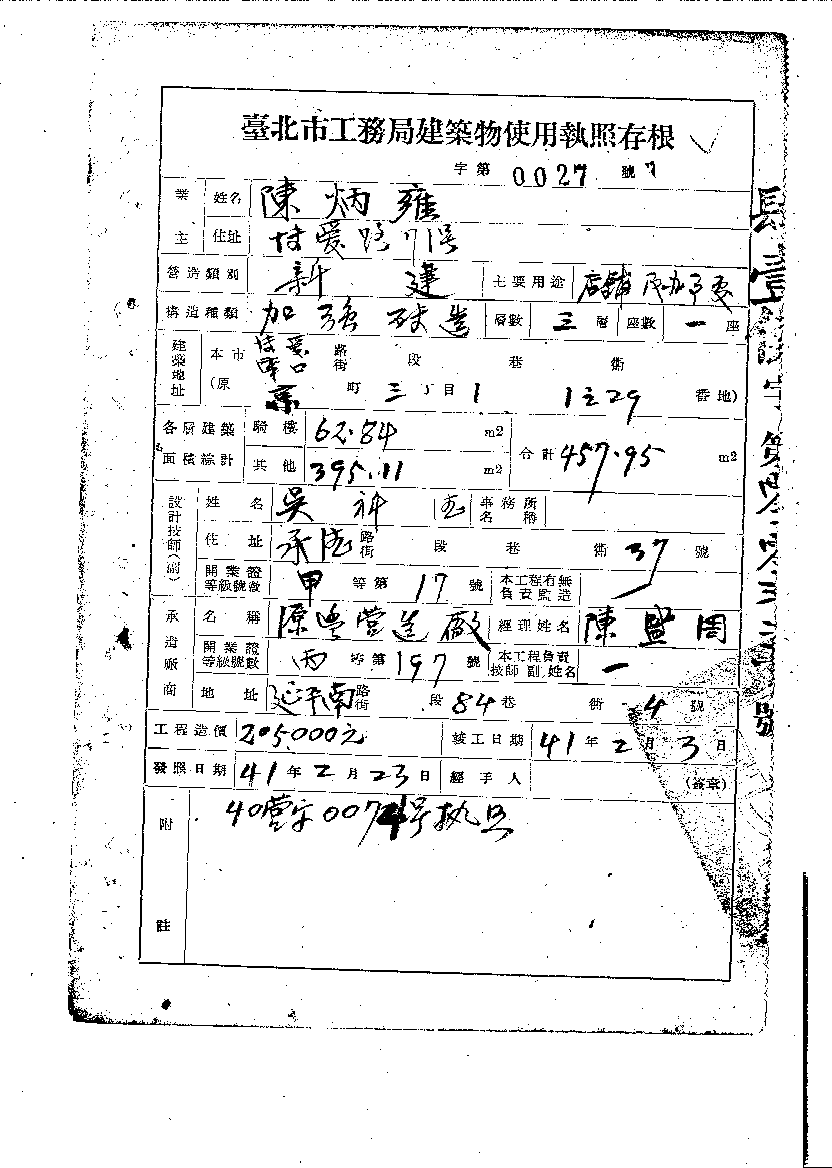 臺北市工務局建築物使用執照存根
字第 0027 號
業主 姓名 陳炳雍
住址 愛路
營造類別 新建 主要用途 店舖
構造種類 加強磚造 層數 三層 座數 一座
建築地址 本市 路街 段 巷 衖
(原 町 三丁目 1 番地)
各層建築面積總計 騎樓 62.84 m2 合計 457.95 m2
其他 395.11 m2
設計技師(副) 姓名 吳 事務所名稱
住址 承德路街 段 巷 衖 37 號
開業證等級號數 甲等第 17 號 本工程有無負責監造
承造廠商 名稱 源豐營造廠 經理姓名 陳盛
開業證等級號數 丙等第 197 號 本工程負責技師副姓名 一
地址 延平南路街 段 84 巷 衖 4 號
工程造價 205000元 竣工日期 41年2月3日
發照日期 41年2月23日 經手人 (簽章)
附註 40營字0074号执照